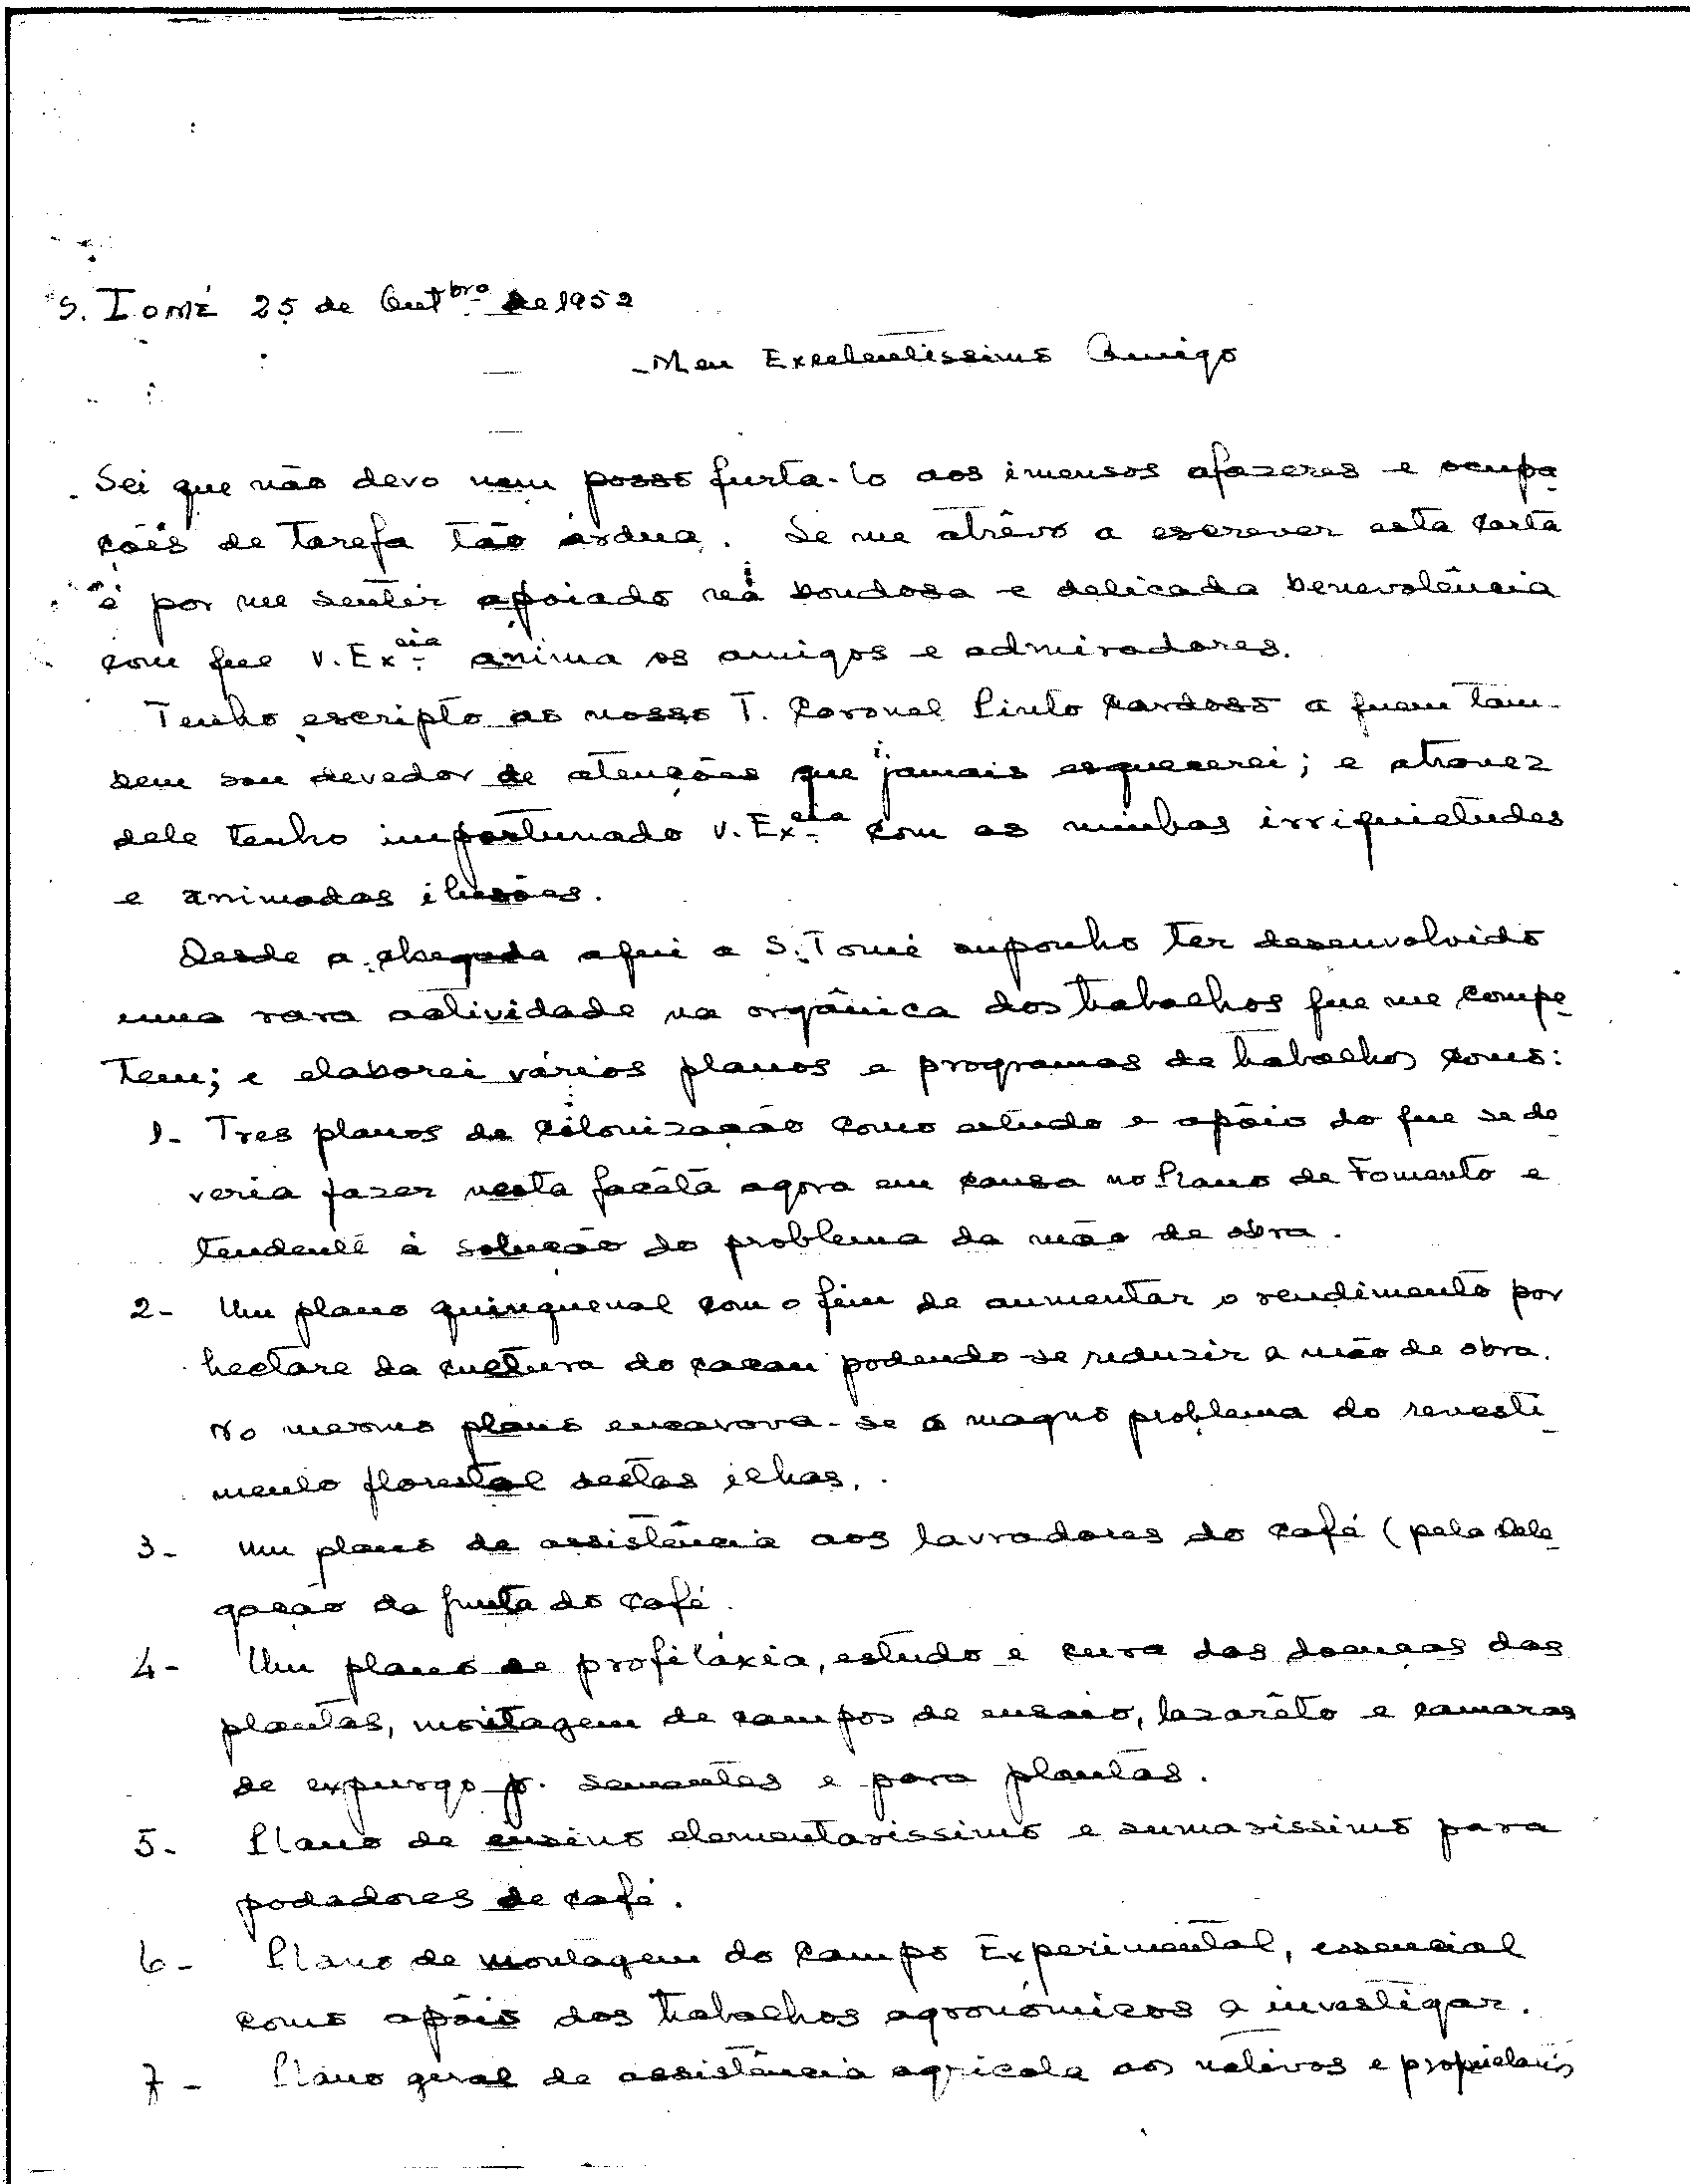 S. Tomé 25 de Outbro de 1952
Meu Excelentissimo Amigo
Sei que não devo nem posso furta-lo aos imensos afazeres e ocupa
ções de tarefa tão árdua. Se me atrêvo a escrever esta carta
é por me sentir apoiado na bondosa e delicada benevolência
com que V. Excia anima os amigos e admiradores.
Tenho escripto ao nosso T. Coronel Pinto Cardoso a quem tam-
bem sou devedor de atenções que jamais esquecerei; e atravez
dele tenho importunado V. Excia com as minhas irriquietudes
e animadas ilusões.
Desde a chegada aqui a S. Tomé suponho ter desenvolvido
uma rara actividade na orgânica dos trabalhos que me compe-
tem; e elaborei vários planos e programas de trabalhos como:
1- Tres planos de colonização como estudo e apôio do que se de
veria fazer nesta facêta agora em causa no Plano de Fomento e
tendente á solução do problema da mão de obra.
2- Um plano quinquenal com o fim de aumentar o rendimento por
hectare da cultura do cacau podendo-se reduzir a mão de obra.
No mesmo plano encarava-se o magno problema do revesti-
mento florestal destas ilhas.
3- Um plano de assistência aos lavradores do café (pela Dele-
gação da Junta do Café.
4- Um plano de profiláxia, estudo e cura das doenças das
plantas, montagem de campos de ensaio, lazarêto e camaras
de expurgo p. sementes e para plantas.
5- Plano de ensino elementarissimo e sumarissimo para
podadores de café.
6- Plano de montagem do Campo Experimental, essencial
como apôio dos trabalhos agronómicos a investigar.
7- Plano geral de assistência agricola aos nativos e proprietarios